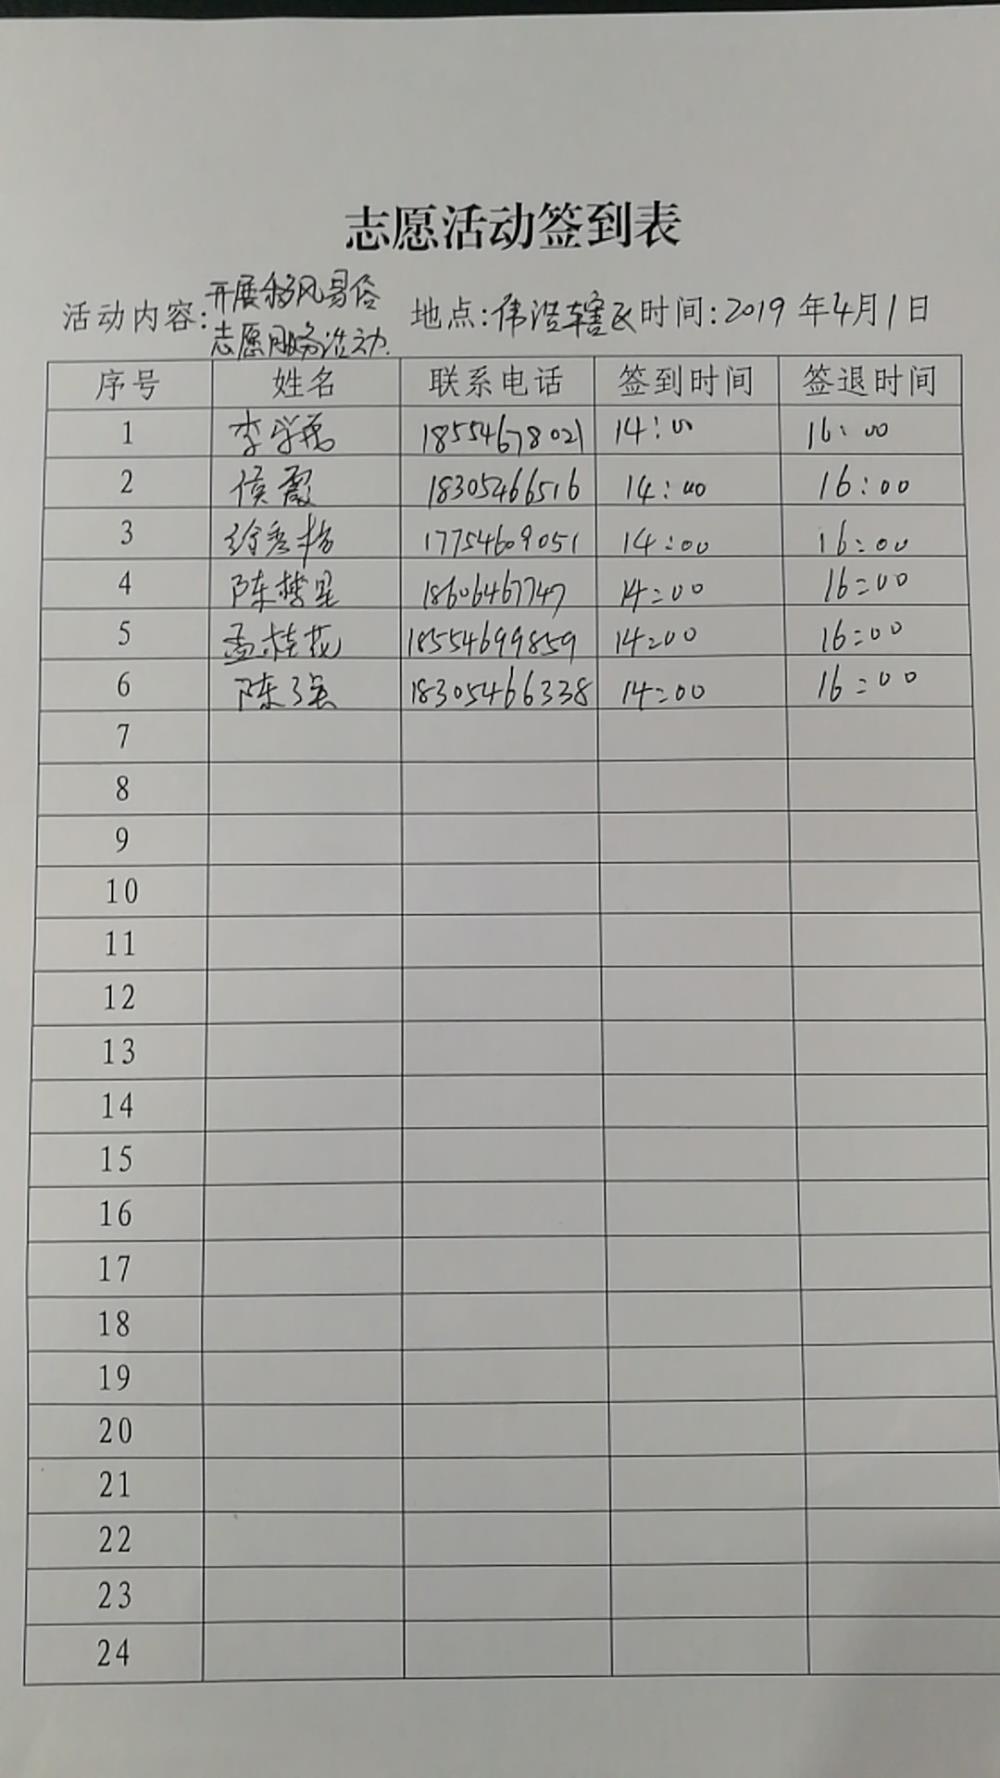 志愿活动签到表
活动内容:开展移风易俗志愿服务活动. 地点:伟浩辖区时间:2019年4月1日
序号 姓名 联系电话 签到时间 签退时间
1 李学 18554678021 14:00 16:00
2 侯霞 18305466516 14:00 16:00
3 徐秀梅 17754609051 14:00 16:00
4 陈梦星 18606467747 14:00 16:00
5 孟桂花 18554699859 14:00 16:00
6 陈 18305466338 14:00 16:00
7
8
9
10
11
12
13
14
15
16
17
18
19
20
21
22
23
24